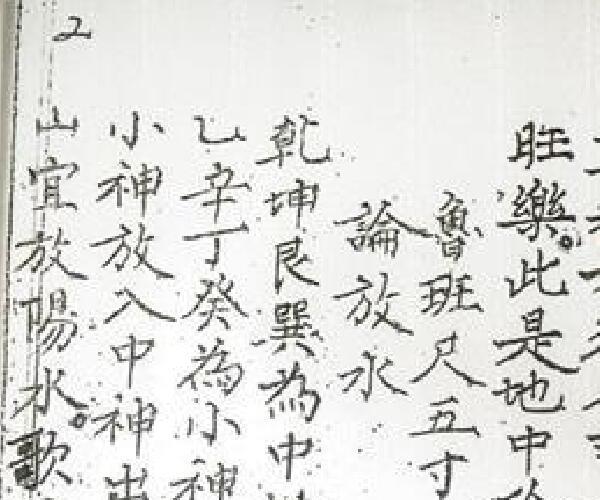 旺樂。此是地中
魯班尺五寸
論放水
乾坤艮巽為中
乙辛丁癸為小神
小神放入中神出
山宜放陽水。歌
2